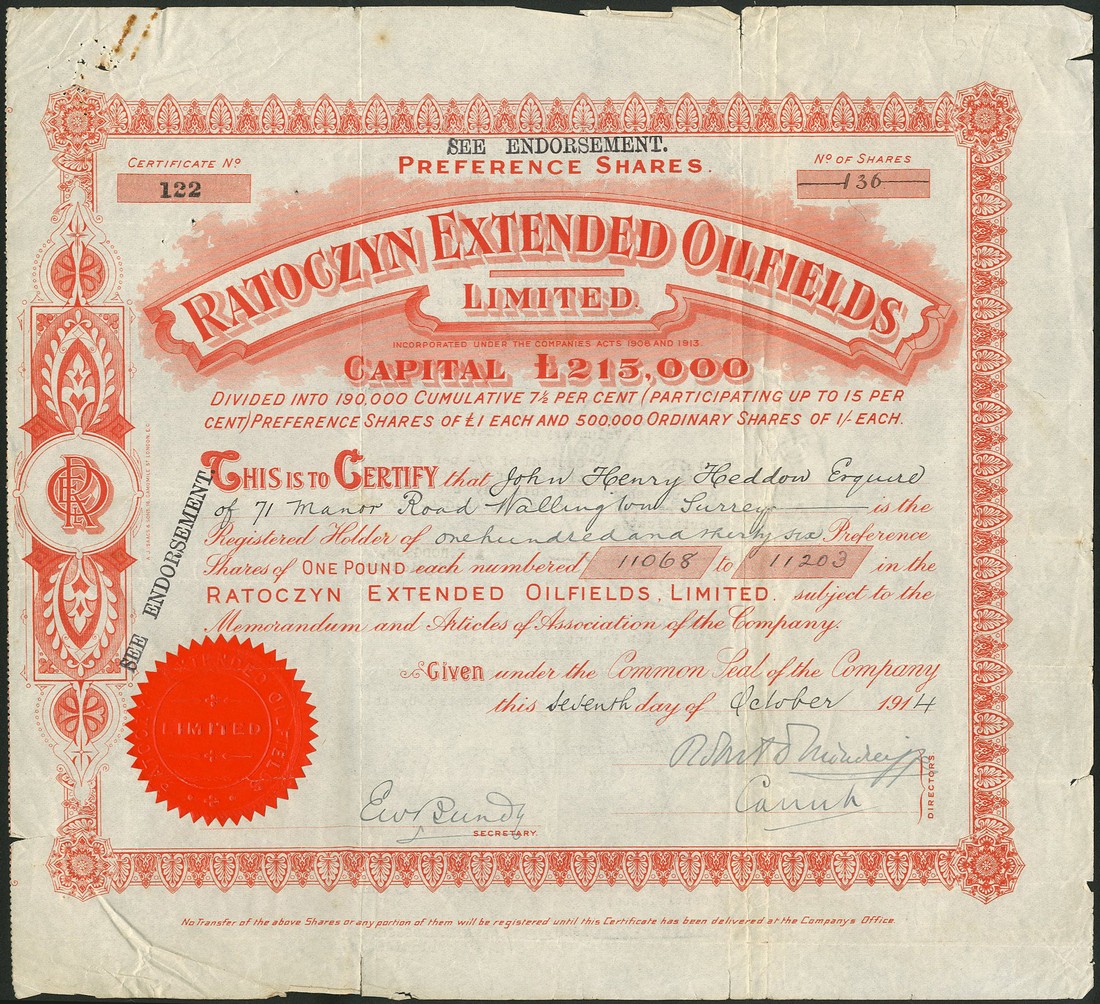 SEE ENDORSEMENT.
PREFERENCE SHARES.
CERTIFICATE Nº
122
Nº OF SHARES
136
RATOCZYN EXTENDED OILFIELDS
LIMITED.
INCORPORATED UNDER THE COMPANIES ACTS 1908 AND 1913.
CAPITAL £215,000
DIVIDED INTO 190,000 CUMULATIVE 7½ PER CENT (PARTICIPATING UP TO 15 PER
CENT) PREFERENCE SHARES OF £1 EACH AND 500,000 ORDINARY SHARES OF 1/- EACH.
THIS IS TO CERTIFY that John Henry Heddow Esquire
of 71 Manor Road Wallington Surrey is the
Registered Holder of one hundred and thirty six Preference
Shares of ONE POUND each numbered 11068 to 11203 in the
RATOCZYN EXTENDED OILFIELDS, LIMITED. subject to the
Memorandum and Articles of Association of the Company.
Given under the Common Seal of the Company
this seventh day of October 1914
SEE ENDORSEMENT.
LIMITED
DIRECTORS
E W Bundy
SECRETARY.
No Transfer of the above Shares or any portion of them will be registered until this Certificate has been delivered at the Companys Office.